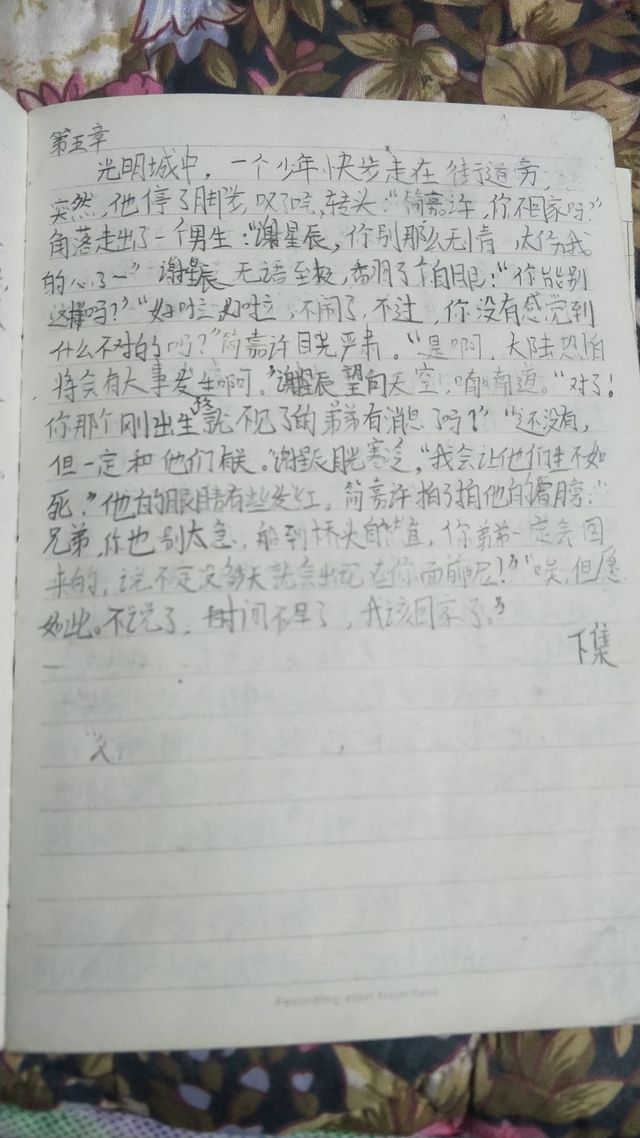 第五章
光明城中，一个少年快步走在街道旁，
突然，他停了脚步，叹了口气，转头：“简嘉许，你不回家吗？”
角落走出了一个男生：“谢星辰，你别那么无情，太伤我
的心了～”谢星辰无语至极，翻了个白眼：“你能别
这样吗？”“好吧好吧，不闹了，不过，你没有感觉到
什么不对的吗？”简嘉许目光严肃。“是啊，大陆恐怕
将会有大事发生啊。”谢星辰望向天空，喃喃道。“对了！
你那个刚出生就不见了的弟弟有消息了吗？”“还没有，
但一定和他们有关。”谢星辰目光寒冷，“我会让他们生不如
死。”他的眼睛有些发红。简嘉许拍了拍他的肩膀：“
兄弟，你也别太急，船到桥头自然直，你弟弟一定会回
来的，说不定没多久就会出现在你面前呢？”“唉，但愿
如此。不说了，时间不早了，我该回家了。”
下集
父
Recording start from here